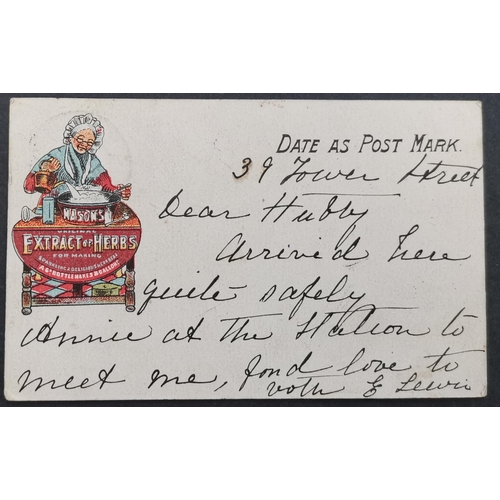 DATE AS POST MARK.
39 Tower Street
Dear Hubby
Arrived here
quite safely
Annie at the Station to
meet me, fond love to
both E Lewis
MASON'S
ORIGINAL
EXTRACT OF HERBS
FOR MAKING
A 6D BOTTLE MAKES 8 GALLONS